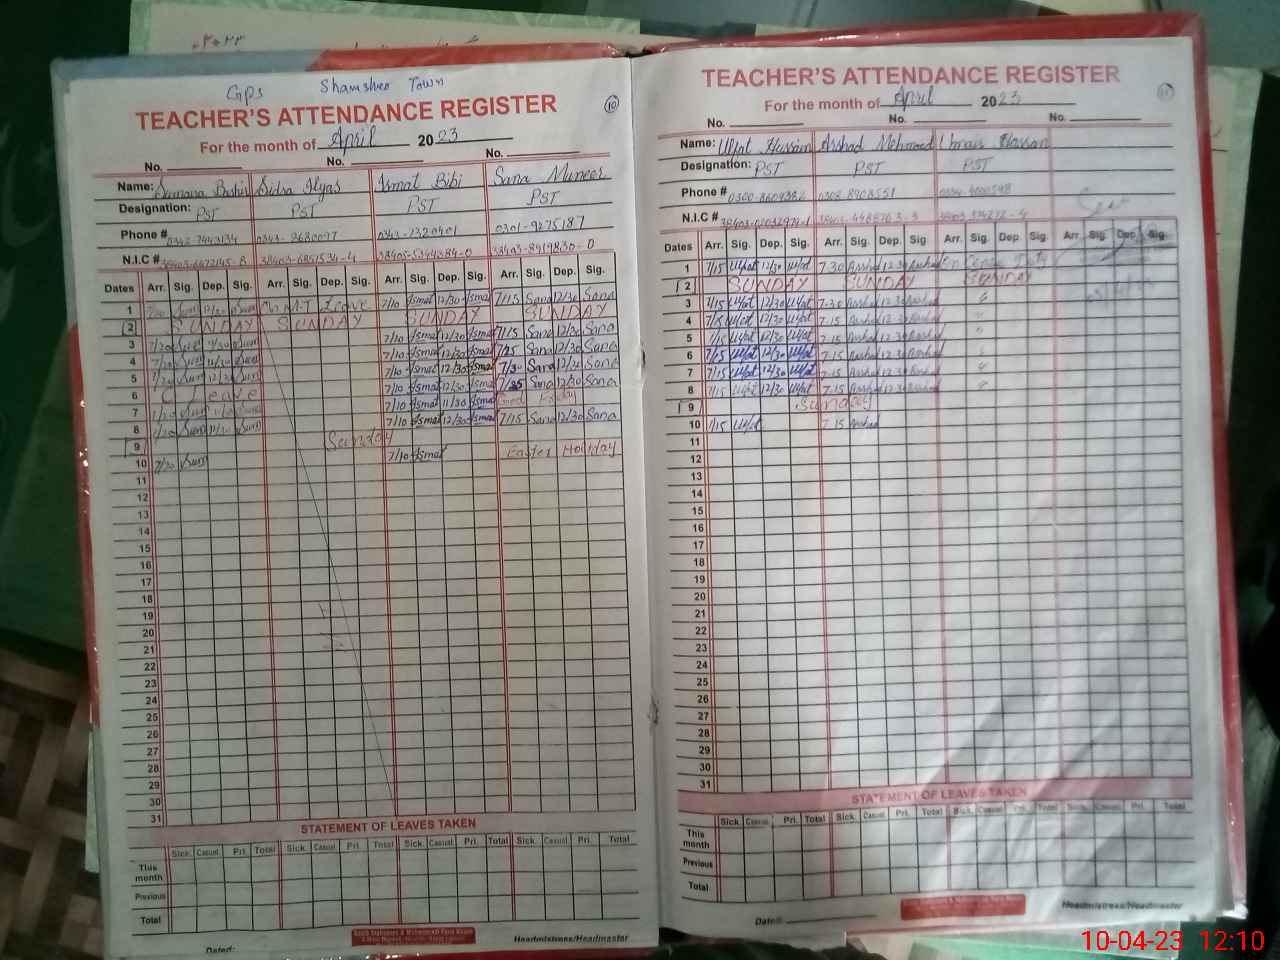 GPS Shamsher Town
TEACHER'S ATTENDANCE REGISTER
10
For the month of April 2023
No. No. No.
Name: Sumava Bashir Sidra Ilyas Ismat Bibi Sana Muneer
Designation: PST PST PST PST
Phone # 0342-7443134 0343-7320401 0301-9275187
N.I.C #
Dates Arr. Sig. Dep. Sig. Arr. Sig. Dep. Sig. Arr. Sig. Dep. Sig. Arr. Sig. Dep. Sig.
1 7/20 12/30 Leave 7/10 Ismat 12/30 Ismat 7/15 Sana 12/30 Sana
2 SUNDAY SUNDAY SUNDAY SUNDAY
3 7/20 7/10 Ismat 12/30 Ismat 7/15 Sana 12/30 Sana
4 7/20 7/10 Ismat 12/30 Ismat Sana 12/30 Sana
5 7/20 7/10 Ismat 12/30 Ismat 7/30 Sana 12/30 Sana
6 Leave 7/10 Ismat 12/30 Ismat Sana 12/30 Sana
7 7/20 7/10 Ismat 11/30 Ismat Good Friday
8 7/20 7/10 Ismat 12/30 Ismat 7/15 Sana 12/30 Sana
9 Sunday
10 7/20 7/10 Ismat Easter Holiday
11
12
13
14
15
16
17
18
19
20
21
22
23
24
25
26
27
28
29
30
31
STATEMENT OF LEAVES TAKEN
Sick. Casual Pri. Total Sick. Casual Pri. Total Sick. Casual Pri. Total Sick. Casual Pri. Total
This month
Previous
Total
Dated: Headmistress/Headmaster
TEACHER'S ATTENDANCE REGISTER
For the month of April 2023
No. No. No.
Name: Ulfat Hussain Arshad Mehmood Imran Hassan
Designation: PST PST PST
Phone # 0300-8609382 0302-8908551
N.I.C #
Dates Arr. Sig. Dep. Sig. Arr. Sig. Dep. Sig. Arr. Sig. Dep. Sig. Arr. Sig. Dep. Sig.
1 7/15 Ulfat 12/30 Ulfat 7.30 Arshad 12.30 Arshad On Census Duty
2 SUNDAY SUNDAY SUNDAY
3 7/15 Ulfat 12/30 Ulfat Arshad 12.30 Arshad
4 7/15 Ulfat 12/30 Ulfat 7.15 Arshad 12.30 Arshad
5 7/15 Ulfat 12/30 Ulfat 7.15 Arshad 12.30 Arshad
6 7/15 Ulfat 12/30 Ulfat 7.15 Arshad 12.30 Arshad
7 7/15 Ulfat 12/30 Ulfat 7.15 Arshad 12.30 Arshad
8 7/15 Ulfat 12/30 Ulfat 7.15 Arshad 12.30 Arshad
9 Sunday
10 7/15 Ulfat 7.15 Arshad
12
13
14
15
16
17
18
19
20
21
22
23
24
25
26
27
28
29
30
31
STATEMENT OF LEAVES TAKEN
Sick. Casual Pri. Total Sick. Casual Pri. Total Sick. Casual Pri. Total Sick. Casual Pri. Total
This month
Previous
Total
Dated: Headmistress/Headmaster
10-04-23 12:10